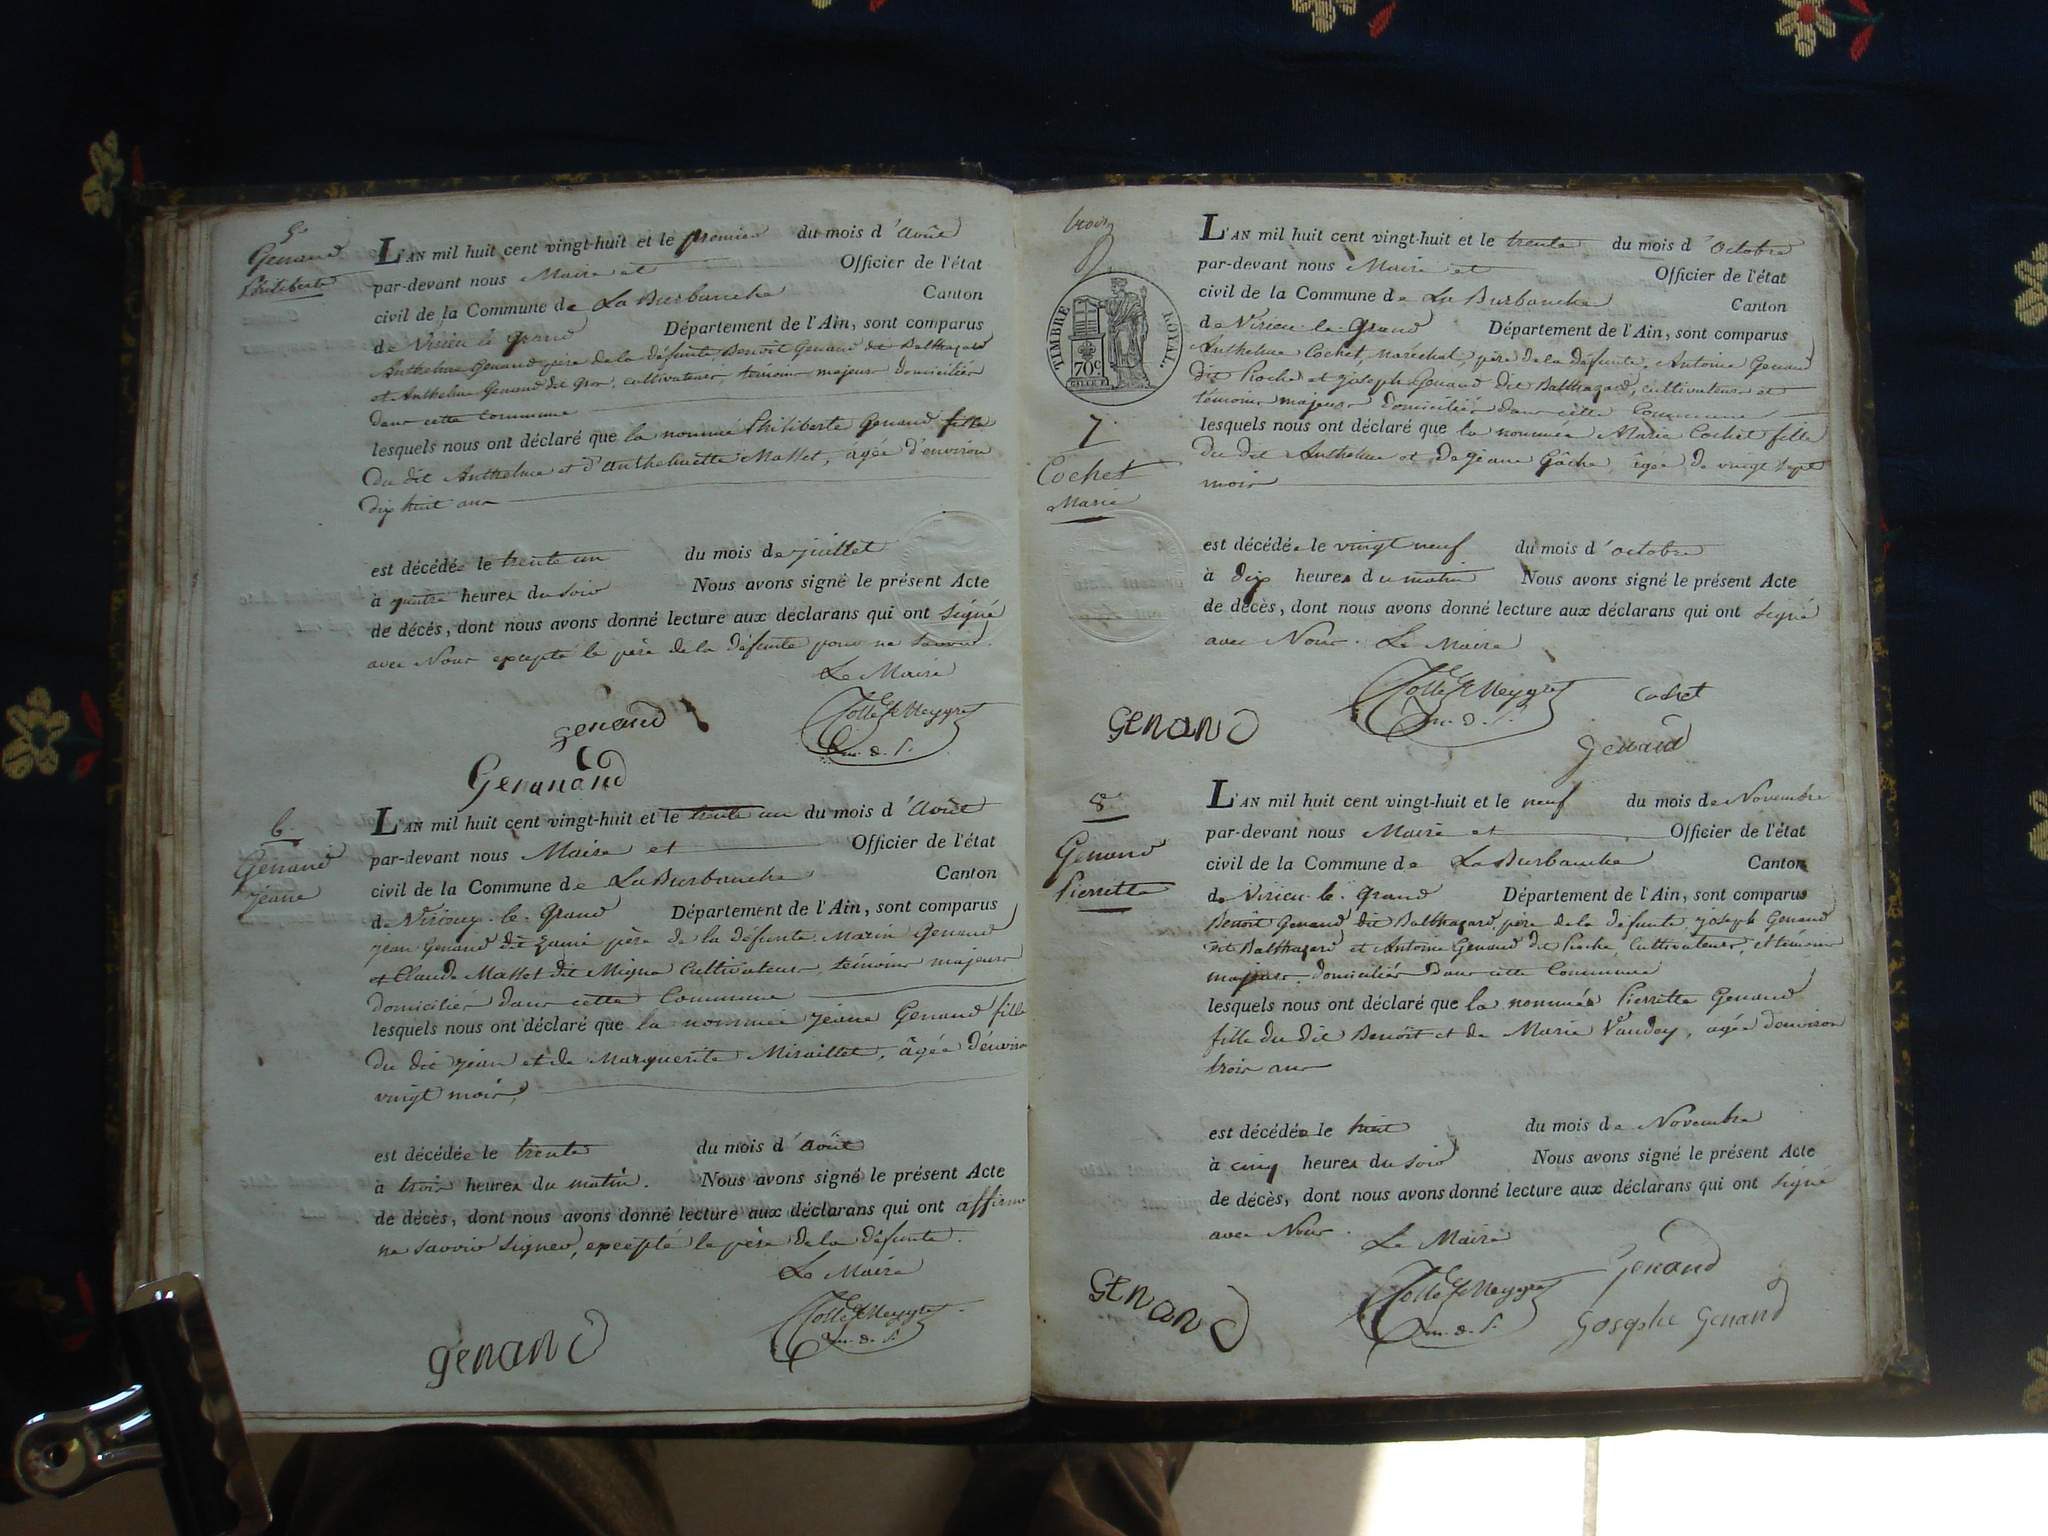 5.
Genand
Philiberte
L'AN mil huit cent vingt-huit et le premier du mois d'Août
par-devant nous Maire et Officier de l'état
civil de la Commune de La Burbanche Canton
de Virieu le grand Département de l'Ain, sont comparus
Anthelme Genand père de la défunte Benoît Genand dit Balthazard
et Anthelme Genand dit Gros, cultivateurs, témoins majeurs domiciliés
dans cette Commune
lesquels nous ont déclaré que la nommée Philiberte Genand fille
du dit Anthelme et d'Anthelmette Masset, agée d'environ
dix huit ans
est décédée le trente un du mois de juillet
à quatre heures du soir Nous avons signé le présent Acte
de décés, dont nous avons donné lecture aux déclarans qui ont signé
avec Nous excepté le père de la défunte pour ne savoir.
Le Maire
genand
Genanand
m. d. s.
6.
Genand
jeane
L'AN mil huit cent vingt-huit et le trente un du mois d'Août
par-devant nous Maire et Officier de l'état
civil de la Commune de La Burbanche Canton
de Virieux-le-Grand Département de l'Ain, sont comparus
jean Genand dit père de la défunte Marin Genand
et Claude Masset dit Migna Cultivateurs, témoins majeurs
domiciliés dans cette Commune
lesquels nous ont déclaré que la nommée jeane Genand fille
du dit jean et de Marguerite Miraillet, âgée d'enviro
vingt mois,
est décédée le trente du mois d'août
à trois heures du matin. Nous avons signé le présent Acte
de décès, dont nous avons donné lecture aux déclarans qui ont affirmé
ne savoir signer, excepté le père de la défunte.
Le Maire
genand
m. d. s.
trois
TIMBRE ROYAL.
70c.
7.
Cochet
Marie
L'AN mil huit cent vingt-huit et le trente du mois d'octobre
par-devant nous Maire et Officier de l'état
civil de la Commune de La Burbanche Canton
de Virieu-le-Grand Département de l'Ain, sont comparus
Anthelme Cochet, maréchal, père de la défunte, Antoine Genand
dit Pioche et joseph Genand dit Balthazard, cultivateurs et
témoins majeurs domiciliés dans cette Commune
lesquels nous ont déclaré que la nommée Marie Cochet fille
du dit Anthelme et de jeane Gâche, âgée de vingt sept
mois
est décédée le vingt neuf du mois d'octobre
à dix heures du matin Nous avons signé le présent Acte
de décès, dont nous avons donné lecture aux déclarans qui ont signé
avec Nous. Le Maire
cochet
m. d. s.
GENAND
genand
8.
Genand
Pierrette
L'AN mil huit cent vingt-huit et le neuf du mois de Novembre
par-devant nous Maire et Officier de l'état
civil de la Commune de La Burbanche Canton
de Virieu-le-grand Département de l'Ain, sont comparus
Benoît Genand dit Balthazard, père de la défunte, joseph Genand
dit Balthazard et Antoine Genand dit Pioche, Cultivateurs, et témoins
majeurs domiciliés dans cette Commune
lesquels nous ont déclaré que la nommée Pierrette Genand
fille du dit Benoît et de Marie Vaudey, agée d'environ
trois ans
est décédée le huit du mois de Novembre
à cinq heures du soir Nous avons signé le présent Acte
de décès, dont nous avons donné lecture aux déclarans qui ont signé
avec Nous. Le Maire
Genand
GENAND
m. d. s.
Gosephe Genand